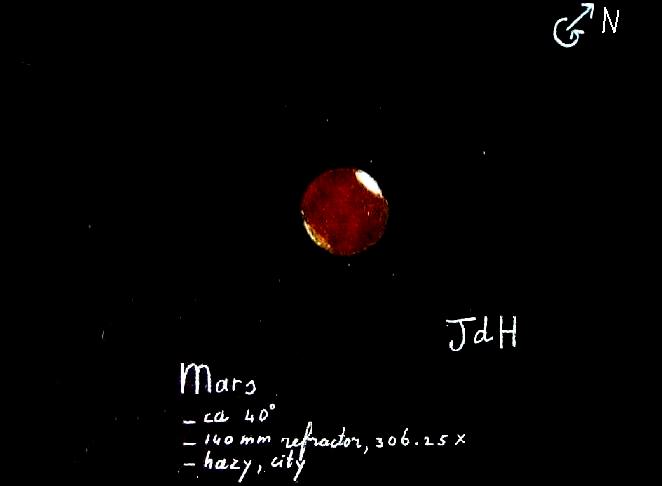 N
JdH
Mars
- ca 40°
- 140 mm refractor, 306.25 x
- hazy, city